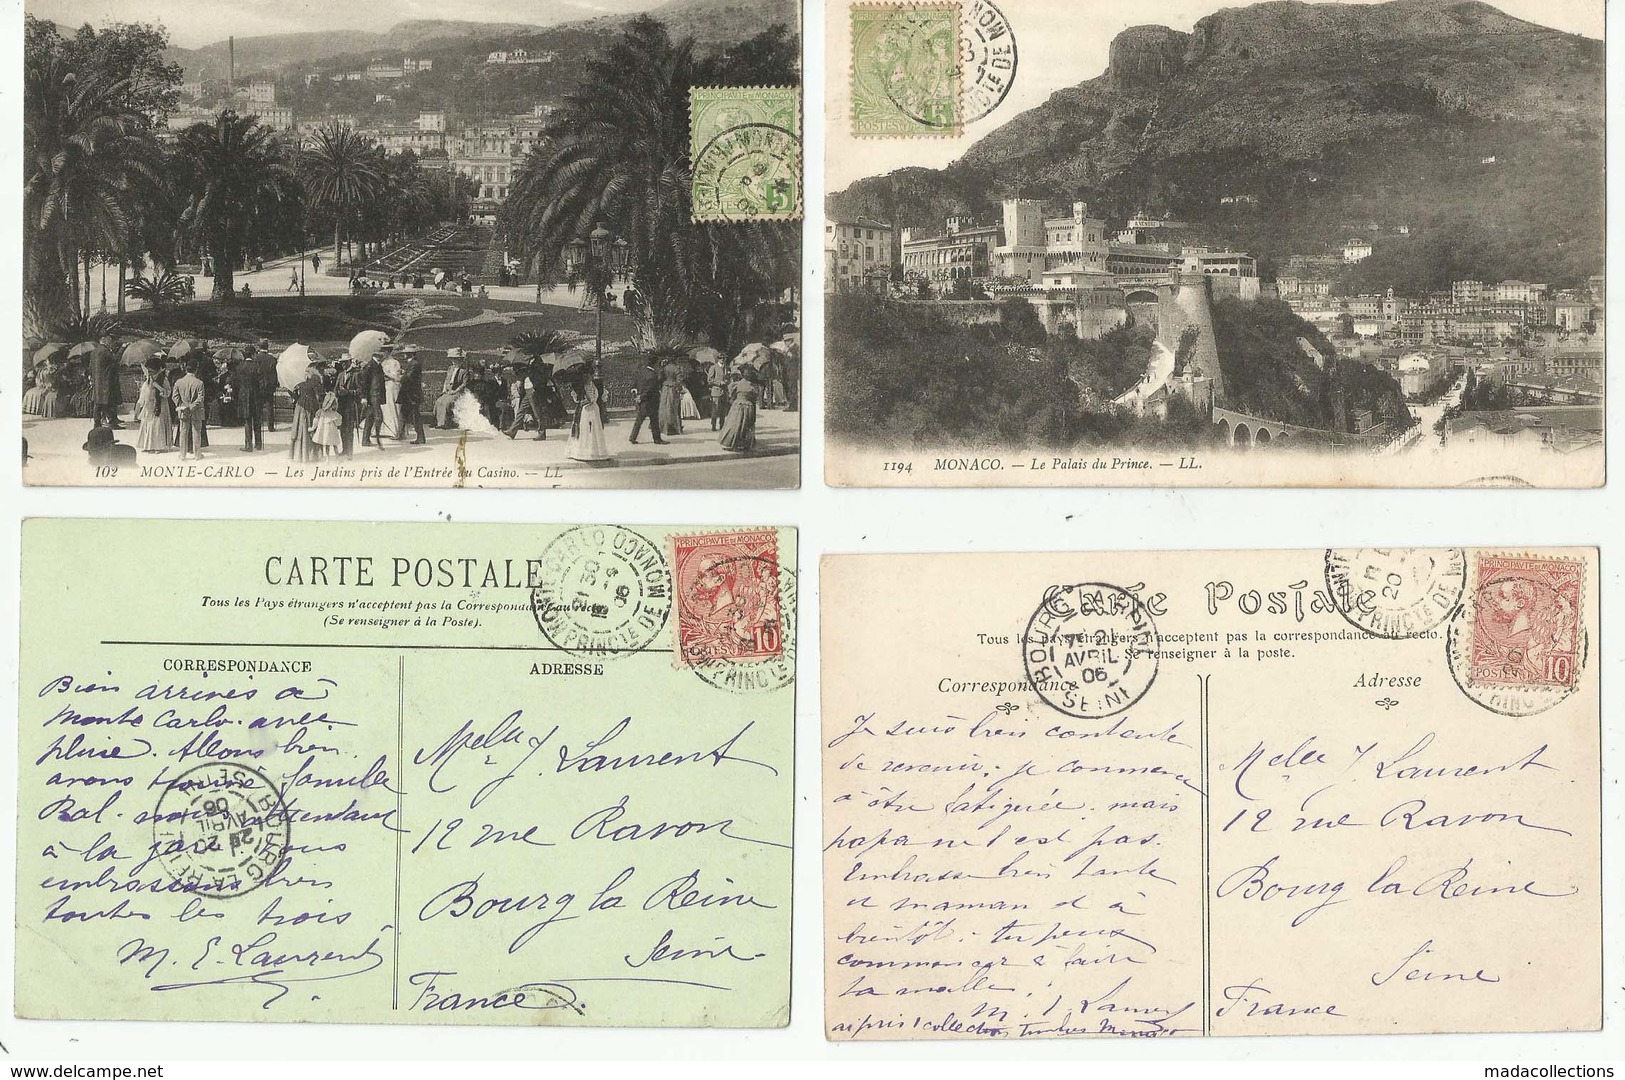 PRINCIPAUTÉ DE MONACO
5
102 MONTE-CARLO — Les Jardins pris de l'Entrée du Casino. — LL
POSTES
5
1194 MONACO. — Le Palais du Prince. — LL.
CARTE POSTALE
Tous les Pays étrangers n'acceptent pas la Correspondance au recto
(Se renseigner à la Poste).
PRINCIPAUTÉ DE MONACO
10
MONTE CARLO
PRINCTE DE MONACO
21 30
06
CORRESPONDANCE
ADRESSE
Bien arrivés à
Monte Carlo. avec
pluie. Allons bien
avons famille
Bal.
à la gare. vous
embrassons bien
toutes les trois
M. E. Laurent
BOURG LA REINE
AVRIL
06
Melle J. Laurent
12 rue Ravon
Bourg la Reine
Seine
France
Carte Postale
Tous les Pays étrangers n'acceptent pas la correspondance au recto.
Se renseigner à la poste.
21
AVRIL
06
SEINE
POSTES
10
Correspondance
Adresse
Je suis bien contente
de revenir. je commence
à être fatiguée. mais
papa ne l'est pas.
Embrasse bien tante
et maman et à
bientôt. tu peux
commencer à faire
ta malle.
Melle J. Laurent
12 rue Ravon
Bourg la Reine
Seine
France
www.delcampe.net
madacollections